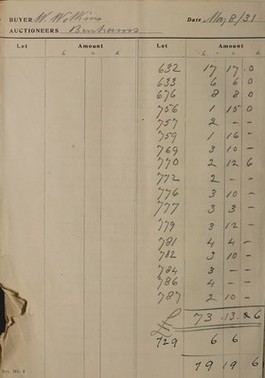 BUYER W. Watkins Date May 8/31
AUCTIONEERS
Lot Amount Lot Amount
£ s d £ s d
632 17 17 0
633 6 6 0
676 8 8 0
756 1 15 0
757 2 - -
759 1 16 -
769 3 10 -
770 2 12 6
772 2 - -
776 3 10 -
777 3 3 -
779 3 12 -
781 4 4 -
782 3 10 -
784 3 - -
786 4 - -
787 2 10 -
£ 73 13 6
729 6 6
79 19 6